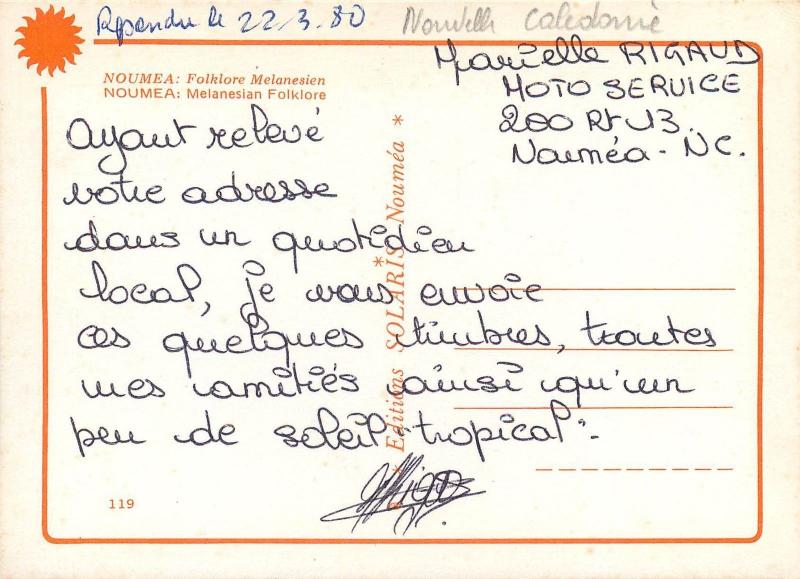 Rependu le 22.3.80 Nouvelle Caledonie
Marielle RIGAUD
MOTO SERVICE
200 Rt 13.
Nouméa - NC.
NOUMEA: Folklore Melanesien
NOUMEA: Melanesian Folklore
Ayant relevé
votre adresse
dans un quotidien
local, je vous envoie
ces quelques timbres, toutes
mes amitiés ainsi qu'un
peu de soleil tropical.
* Editions SOLARIS Nouméa *
119